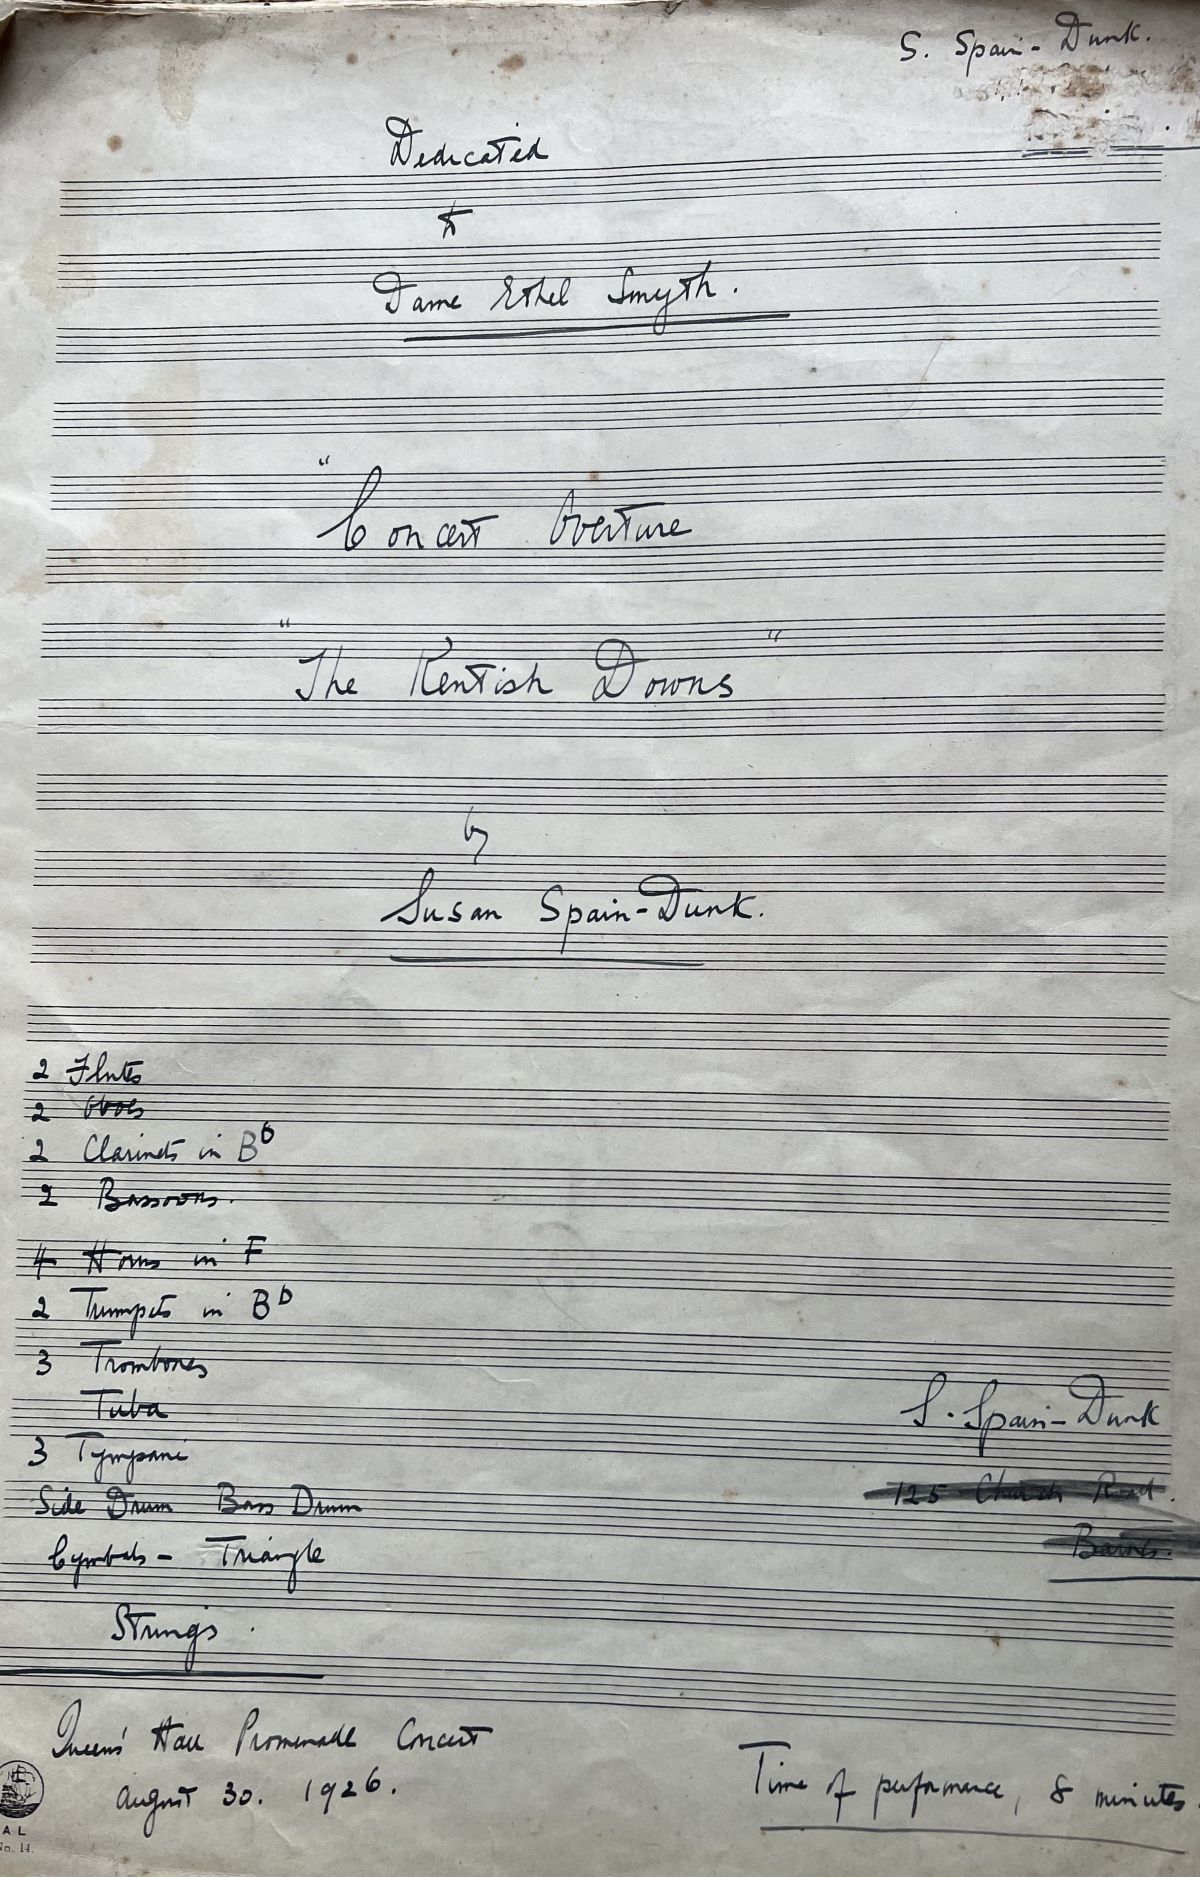 S. Spain-Dunk.
Dedicated
to
Dame Ethel Smyth.
"Concert Overture
"The Kentish Downs"
by
Susan Spain-Dunk.
2 Flutes
2 Oboes
2 Clarinets in Bb
2 Bassoons.
4 Horns in F
2 Trumpets in Bb
3 Trombones
Tuba
3 Tympani
Side Drum Bass Drum
Cymbals - Triangle
Strings.
S. Spain-Dunk
125 Church Road.
Barnes.
Queen's Hall Promenade Concert
August 30. 1926.
Time of performance, 8 minutes.
AL
No. 14.